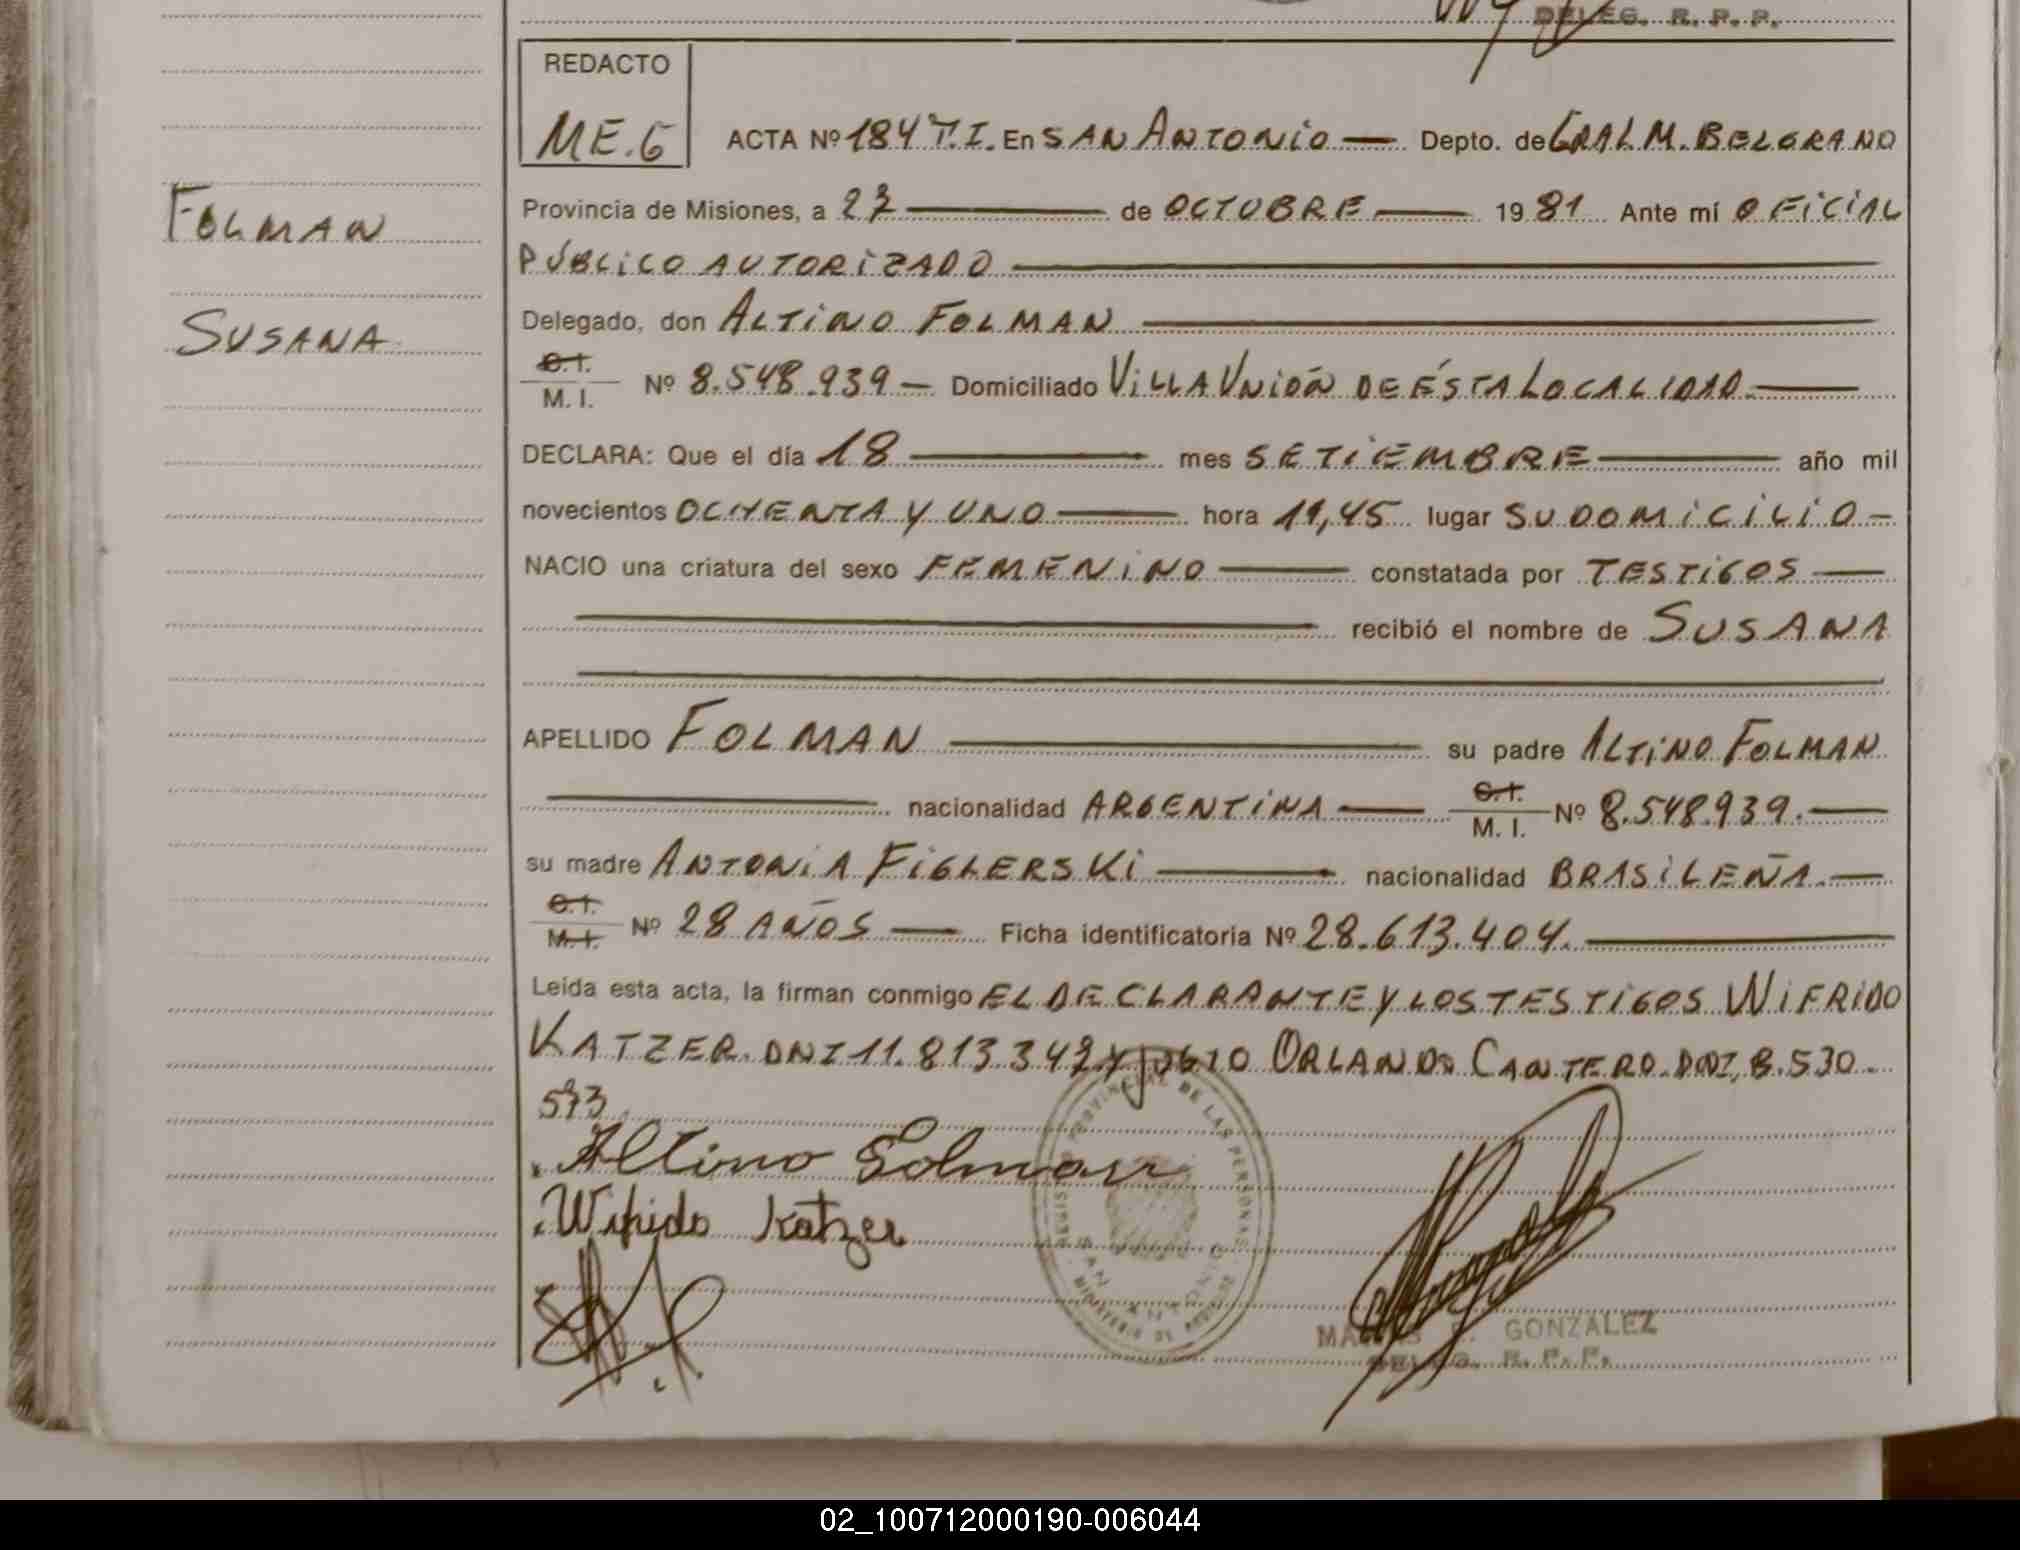 DELEG. R. P. P.
REDACTO
ME.G
ACTA Nº 184 T.I. En SAN ANTONIO — Depto. de GRAL M. BELGRANO
Provincia de Misiones, a 27 — de OCTUBRE — 19 81 Ante mí OFICIAL
PÚBLICO AUTORIZADO —
FOLMAN
SUSANA
Delegado, don ALTINO FOLMAN —
C.I.
M. I. Nº 8.548.939 — Domiciliado VILLA UNIÓN DE ÉSTA LOCALIDAD. —
DECLARA: Que el día 18 — mes SETIEMBRE — año mil
novecientos OCHENTA Y UNO — hora 11,45 lugar SU DOMICILIO —
NACIO una criatura del sexo FEMENINO — constatada por TESTIGOS —
— recibió el nombre de SUSANA
—
APELLIDO FOLMAN — su padre ALTINO FOLMAN
— nacionalidad ARGENTINA — C.I. M. I. Nº 8.548.939. —
su madre ANTONIA FIGLERSKI — nacionalidad BRASILEÑA. —
C.I.
M. I. Nº 28 AÑOS — Ficha identificatoria Nº 28.613.404. —
Leída esta acta, la firman conmigo EL DECLARANTE Y LOS TESTIGOS WIFRIDO
KATZER. DNI 11.813.347 Y JULIO ORLANDO CANTERO. DNI. 8.530.
573.
Altino Folman
Wifrido Katzer
REGISTRO PROVINCIAL DE LAS PERSONAS
SAN ANTONIO
MINISTERIO DE
GONZALEZ
DELEG. R. P. P.
02_100712000190-006044